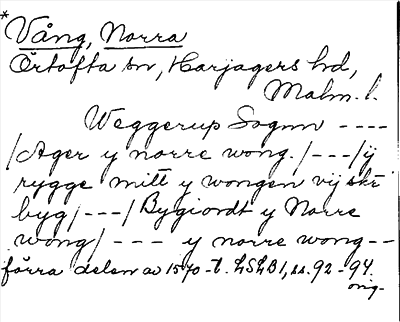 * Vång, Norra
Örtofta sn, Harjagers hd,
Malm. l.
Weggerup Sognn ----
/Ager y norre wong./---/ÿ
rygge mitt y wongen vij skr
byg/---/Bygiordt y Norre
wong/--- y norre wong--
förra delen av 1570-t. LSLB1, ss. 92-94.
orig-